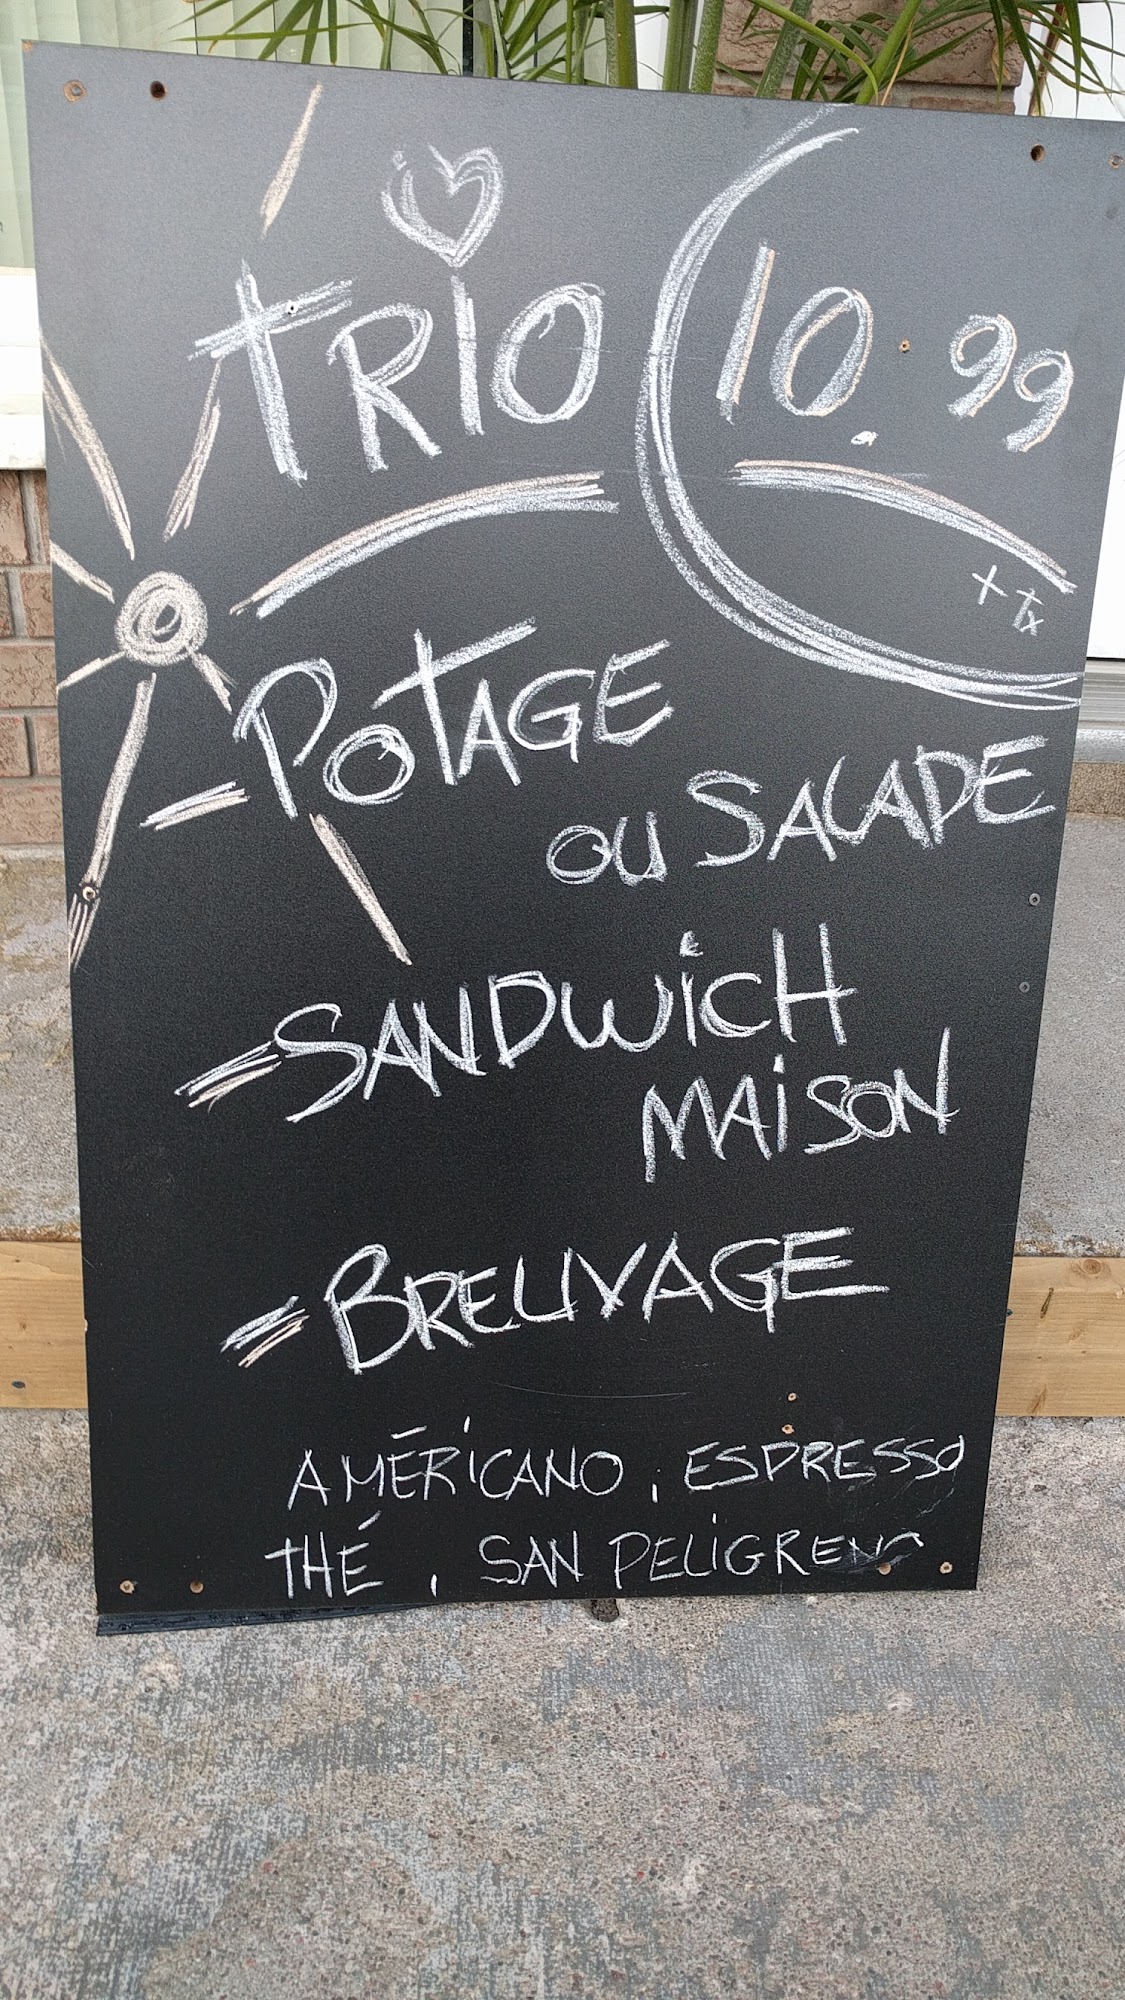 TRIO
10.99
+ Tx
- POTAGE
OU SALADE
- SANDWICH
MAISON
- BREUVAGE
AMÉRICANO, ESPRESSO
THÉ, SAN PELIGRENO